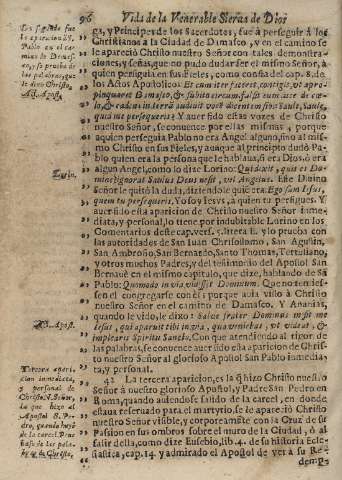 96 Vida de la Venerable Sierua de Dios
ga, y Principe de los Sacerdotes, fuè à perseguir à los
Christianos à la Ciudad de Damasco, y en el camino se
le apareciò Christo nuestro Señor con tales demonstra-
ciones, y señas, que no pudo dudar ser el mismo Señor, à
quien perseguia en sus Fieles, como consta del cap. 8. de
los Actos Apostolicos: Et cum iter faceret, contigit, vt apro-
pinquaret Damasco, & subito
lo, & cadens in terrã audiuit vocẽ dicentem sibi: Saule, Saule,
quid me persequeris? Y auer sido estas vozes de Christo
nuestro Señor, se conuence por ellas mismas, porque
aquien perseguia Pablo no era Angel alguno, sino al mis-
mo Christo en sus Fieles, y aunque al principio dudò Pa-
blo quien era la persona que le hablaua, si era Dios, ò era
algun Angel, como lo dize Lorino: Qui dixit, quis es Do-
mine? ignorat Santus Deus ne sit, vel Angelus. Este Diuino
Señor le quitò la duda, diziendole quiè era. Ego sum Iesus,
quem tu persequeris, Yo soy Iesvs, à quien tu persigues. Y
auer sido esta aparicion de Christo nuestro Señor inme-
diata, y personal, lo tiene por indubitable Lorino en los
Comentarios deste cap. vers. 5. litera E. y lo prueba con
las autoridades de San Iuan Chrisostomo, San Agustin,
San Ambrosio, San Bernardo, Santo Thomas, Tertuliano,
y otros muchos Padres, y del testimonio del Apostol San
Bernavè en el mismo capitulo, que dize, hablando de Sã
Pablo: Quomodo in via vidisset Dominum. Que no tenies-
sen el congregarle conси; porque auia visto à Christo
nuestro Señor en el camino de Damasco. Y Ananias,
quando le vido, le dixo: Saule frater Dominus misit me
Iesus, qui aparuit tibi in via, qua veniebas, vt videas, &
implearis Spiritu Sancto. Con que atendiendo al rigor de
las palabras, se conuence auer sido esta aparicion de Chris-
to nuestro Señor al glorioso Apostol San Pablo inmedia-
ta, y personal.
42 La tercera aparicion, es la q̃ hizo Christo nuestro
Señor à nuestro glorioso Apostol, y Padre San Pedro en
Roma, quando auiendose salido de la carcel, en donde
estaua reseruado para el martyrio, se le apareciò Christo
nuestro Señor visible, y corporalmẽte con la Cruz de su
Passion en sus ombros sobre el muro de la Ciudad, ò al
salir della, como dize Eusebio, lib. 4. de su historia Ecle-
siastica, cap. 14. y admirado el Apostol de ver à su Re-
La segunda fue
Pablo en el ca-
mino de Damas-
co, y se prueba de
las palabras, que
le dixo Christo.
Act. Apost.
Lorin.
Act. Apost.
Tercera apari-
cion inmediata,
y personal de
Christo N. Señor,
la que hizo al
Apostol S. Pe-
dro, quando huyò
de la carcel. Prue-
base de las pala-